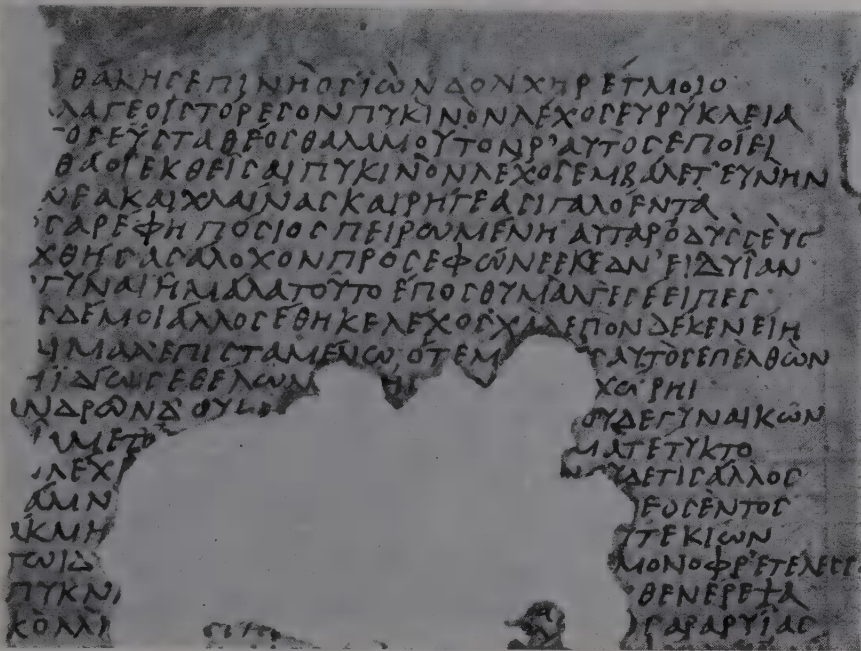 ΘΑΚΗϹΕΠΙΝΗΟϹΪΩΝΔΟΛΙΧΗΡΕΤΜΟΙΟ
ΛΛΑΓΕΟΙϹΤΟΡΕϹΟΝΠΥΚΙΝΟΝΛΕΧΟϹΕΥΡΥΚΛΕΙΑ
ΟϹΕΥϹΤΑΘΕΟϹΘΑΛΑΜΟΥΤΟΝΡ’ΑΥΤΟϹΕΠΟΙΕΙ
ΘΑΟΙΕΚΘΕΙϹΑΙΠΥΚΙΝΟΝΛΕΧΟϹΕΜΒΑΛΕΤ’ΕΥΝΗΝ
ΝΕΑΚΑΙΧΛΑΙΝΑϹΚΑΙΡΗΓΕΑϹΙΓΑΛΟΕΝΤΑ
ϹΑΡΕΦΗΠΟϹΙΟϹΠΕΙΡΩΜΕΝΗΑΥΤΑΡΟΔΥϹϹΕΥϹ
ΧΘΗϹΑϹΑΛΟΧΟΝΠΡΟϹΕΦΩΝΕΕΚΕΔΝ’ΕΙΔΥΙΑΝ
ΓΥΝΑΙΗΜΑΛΑΤΟΥΤΟΕΠΟϹΘΥΜΑΛΓΕϹΕΕΙΠΕϹ
ϹΔΕΜΟΙΑΛΛΟϹΕΘΗΚΕΛΕΧΟϹΧΑΛΕΠΟΝΔΕΚΕΝΕΙΗ
ΙΜΑΛ’ΕΠΙϹΤΑΜΕΝΩΟΤΕΜ ϹΑΥΤΟϹΕΠΕΛΘΩΝ
ΗΙΔΙΩϹΕΘΕΛΩΝ ΧΩΡΗΙ
ΑΝΔΡΩΝΔΟΥ ΟΥΔΕΓΥΝΑΙΚΩΝ
ΜΕΤ ΜΑΤΕΤΥΚΤΟ
ΛΕΧ ΥΔΕΤΙϹΑΛΛΟϹ
ΑΜΝ ΕΟϹΕΝΤΟϹ
ΑΚΜΗ ΥΤΕΚΙΩΝ
ΤΩΙΔ ΜΟΝΟΦΡ’ΕΤΕΛΕϹϹ
ΠΥΚΝ ΘΕΝΕΡΕΨΑ
ΚΟΛΛΗ ϹΑΡΑΡΥΙΑϹ